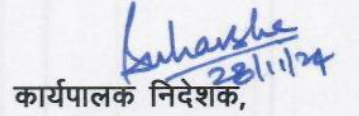 28/11/24
कार्यपालक निदेशक,